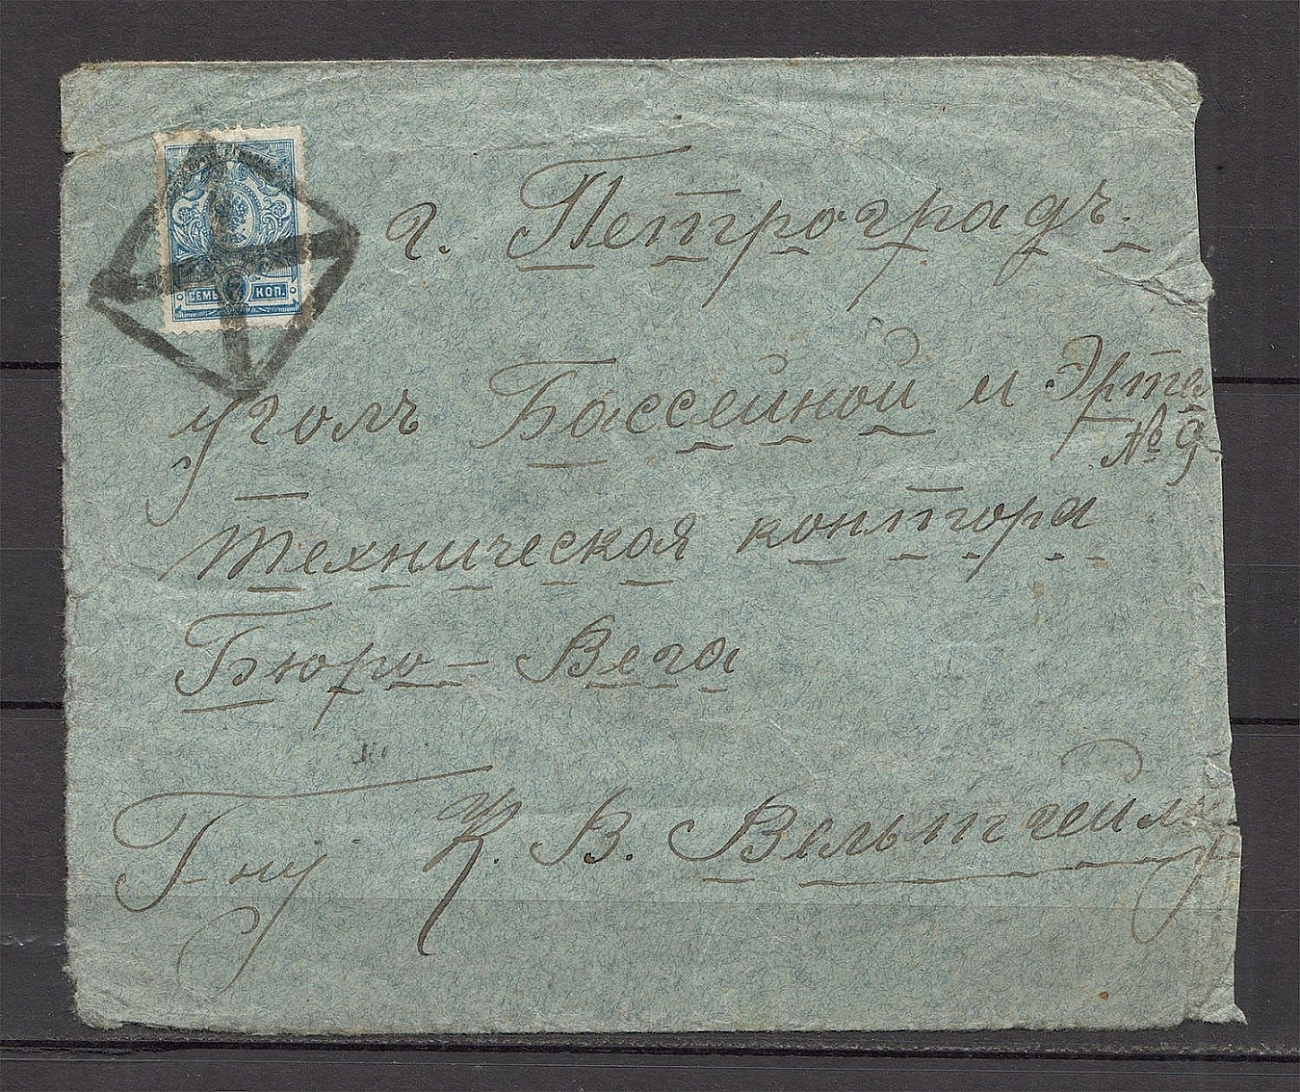 СЕМЬ 7 КОП.
г. Петроградъ.
уголъ Бассейной и Эртел
№ 9
Техническая контора
Бюро - Вега
Г-ну К. В. Вельтгейму